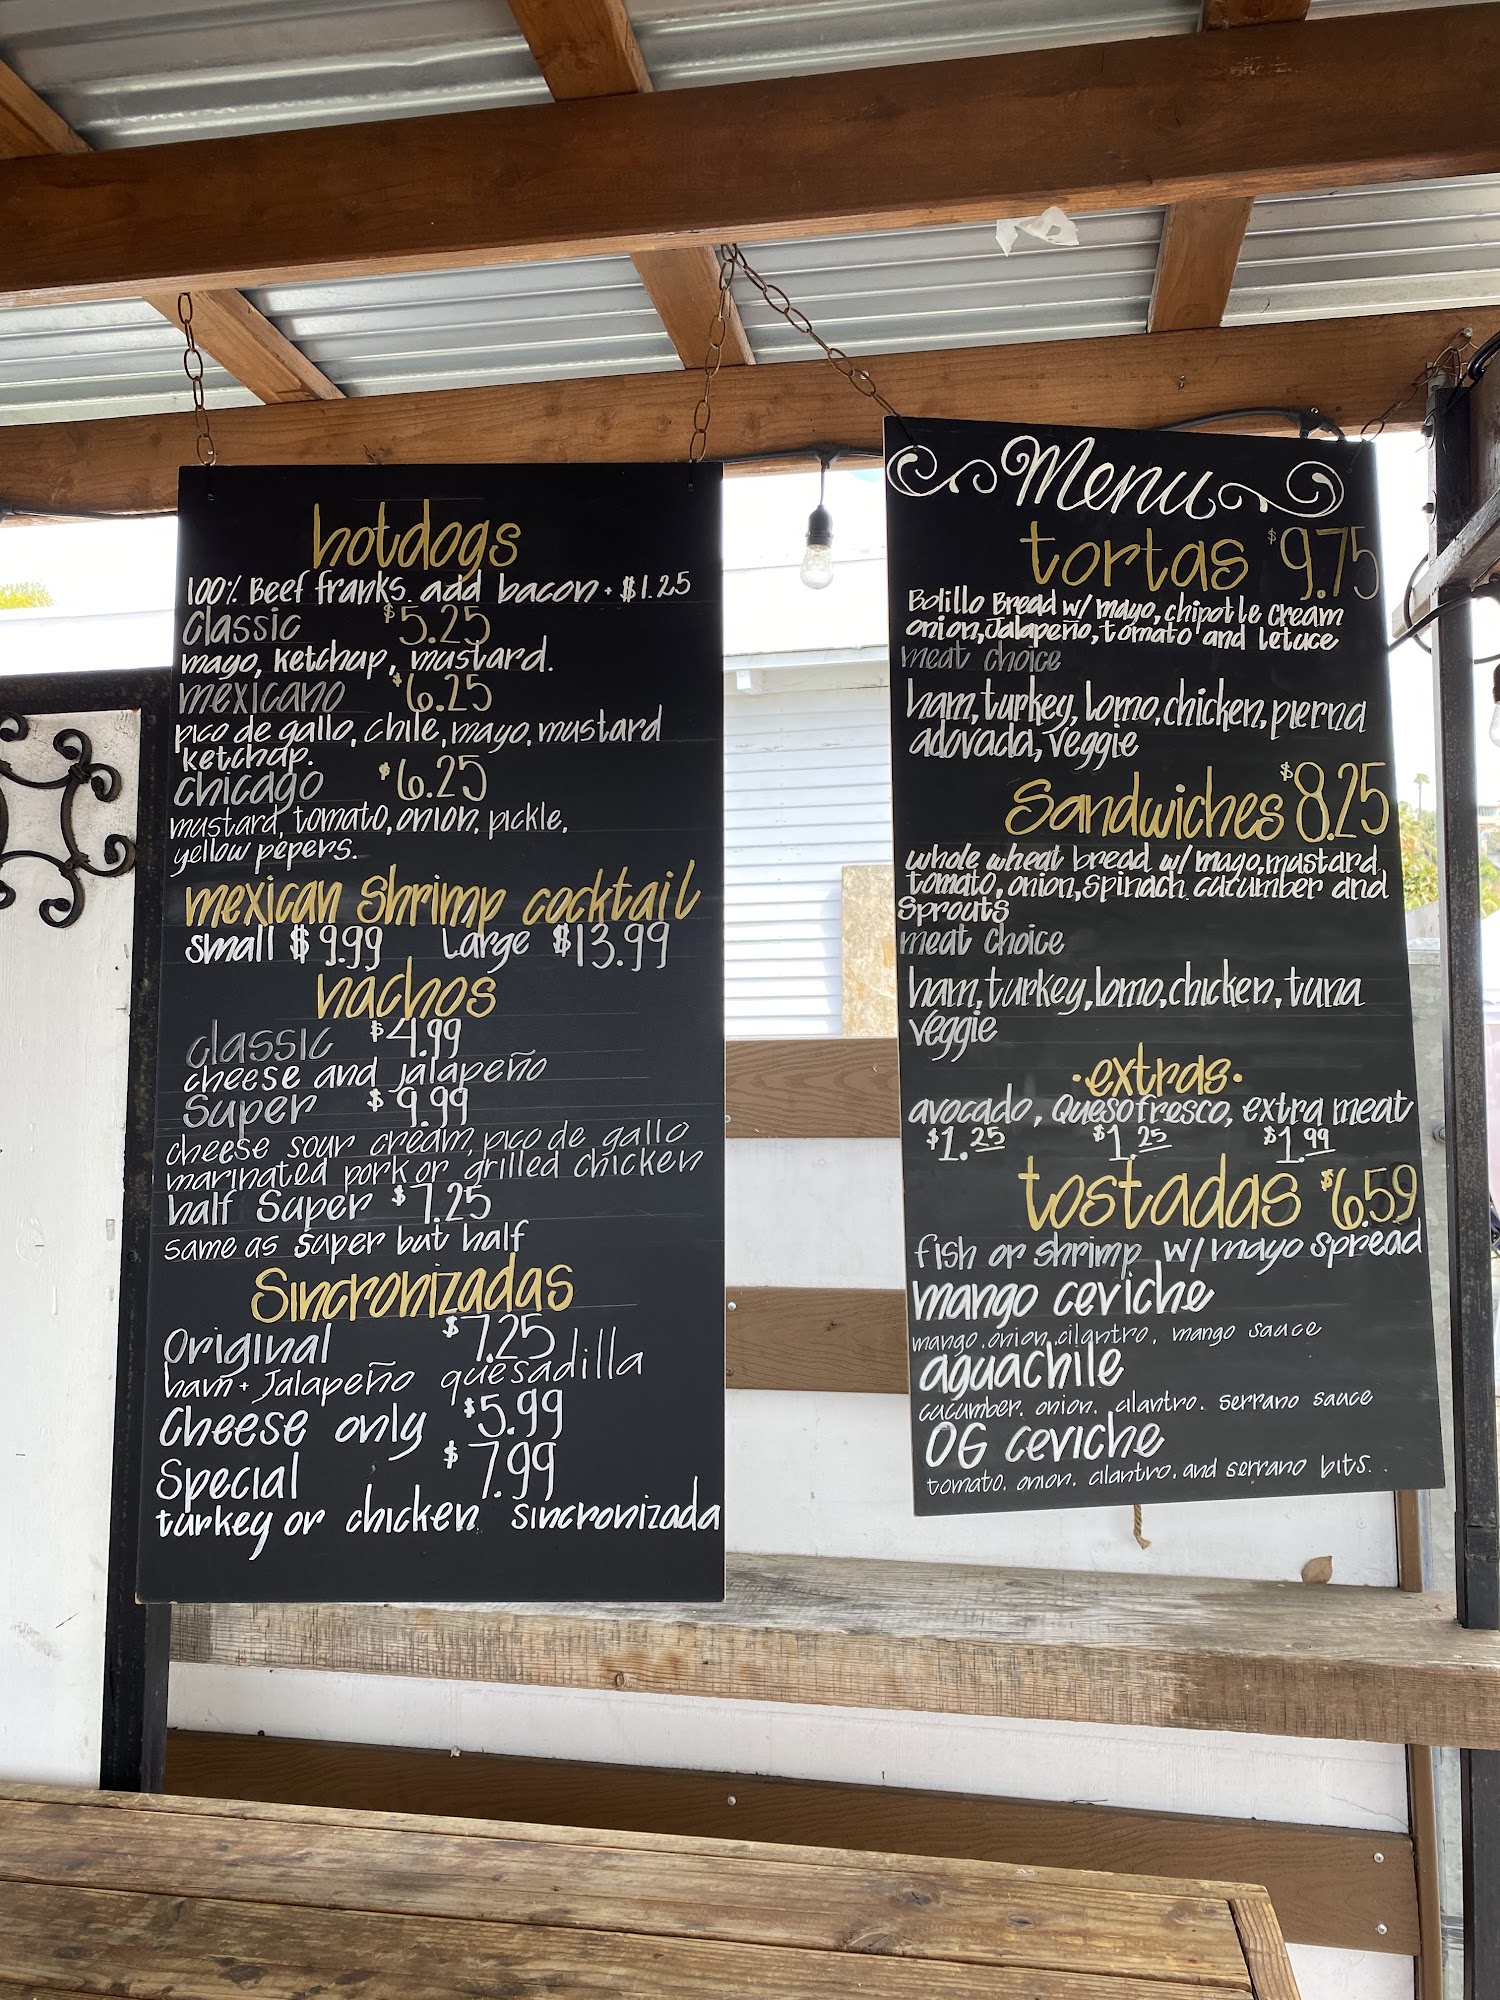 hotdogs
100% Beef franks. add bacon + $1.25
Classic $5.25
mayo, ketchup, mustard.
mexicano $6.25
pico de gallo, chile, mayo, mustard
ketchup.
chicago $6.25
mustard, tomato, onion, pickle,
yellow pepers.
mexican shrimp cocktail
small $9.99 Large $13.99
nachos
classic $4.99
cheese and jalapeño
Super $9.99
cheese sour cream, pico de gallo
marinated pork or grilled chicken
half Super $7.25
same as super but half
Sincronizadas
Original $7.25
ham + Jalapeño quesadilla
Cheese only $5.99
Special $7.99
turkey or chicken sincronizada
Menu
tortas $9.75
Bolillo Bread w/ mayo, chipotle cream
onion, Jalapeño, tomato and letuce
meat choice
ham, turkey, lomo, chicken, pierna
adovada, veggie
Sandwiches $8.25
whole wheat bread w/ mayo, mustard,
tomato, onion, spinach cucumber and
Sprouts
meat choice
ham, turkey, lomo, chicken, tuna
veggie
·extras·
avocado, Quesofresco, extra meat
$1.25 $1.25 $1.99
tostadas $6.59
fish or shrimp w/ mayo spread
mango ceviche
mango. onion. cilantro. mango sauce
aguachile
cucumber. onion. cilantro. serrano sauce
OG ceviche
tomato. onion. cilantro. and serrano bits.